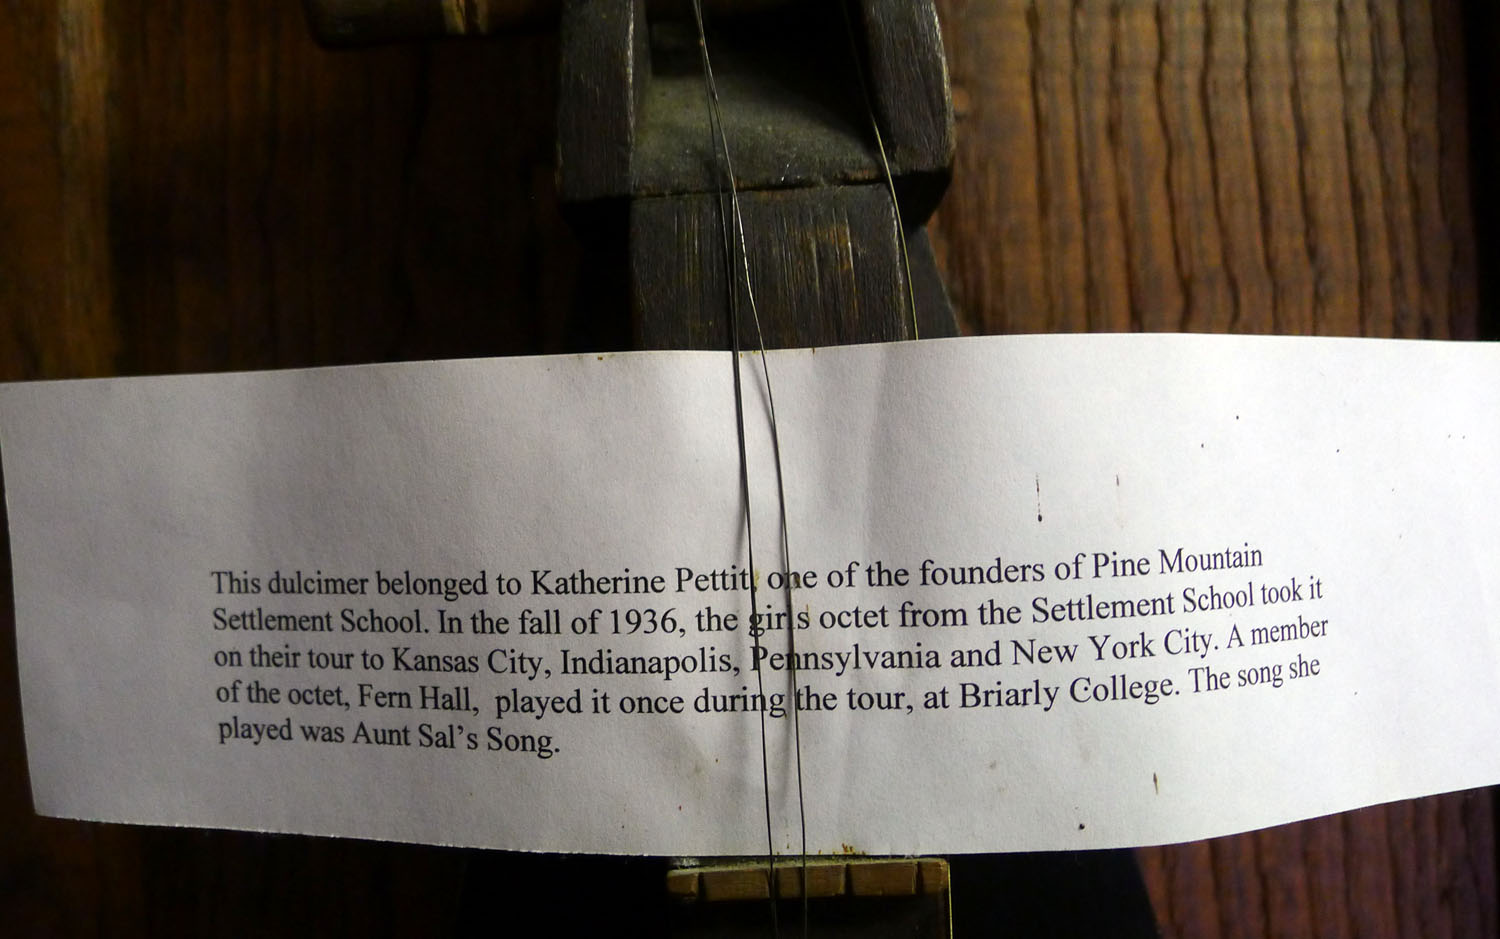 This dulcimer belonged to Katherine Pettit, one of the founders of Pine Mountain
Settlement School. In the fall of 1936, the girls octet from the Settlement School took it
on their tour to Kansas City, Indianapolis, Pennsylvania and New York City. A member
of the octet, Fern Hall, played it once during the tour, at Briarly College. The song she
played was Aunt Sal’s Song.